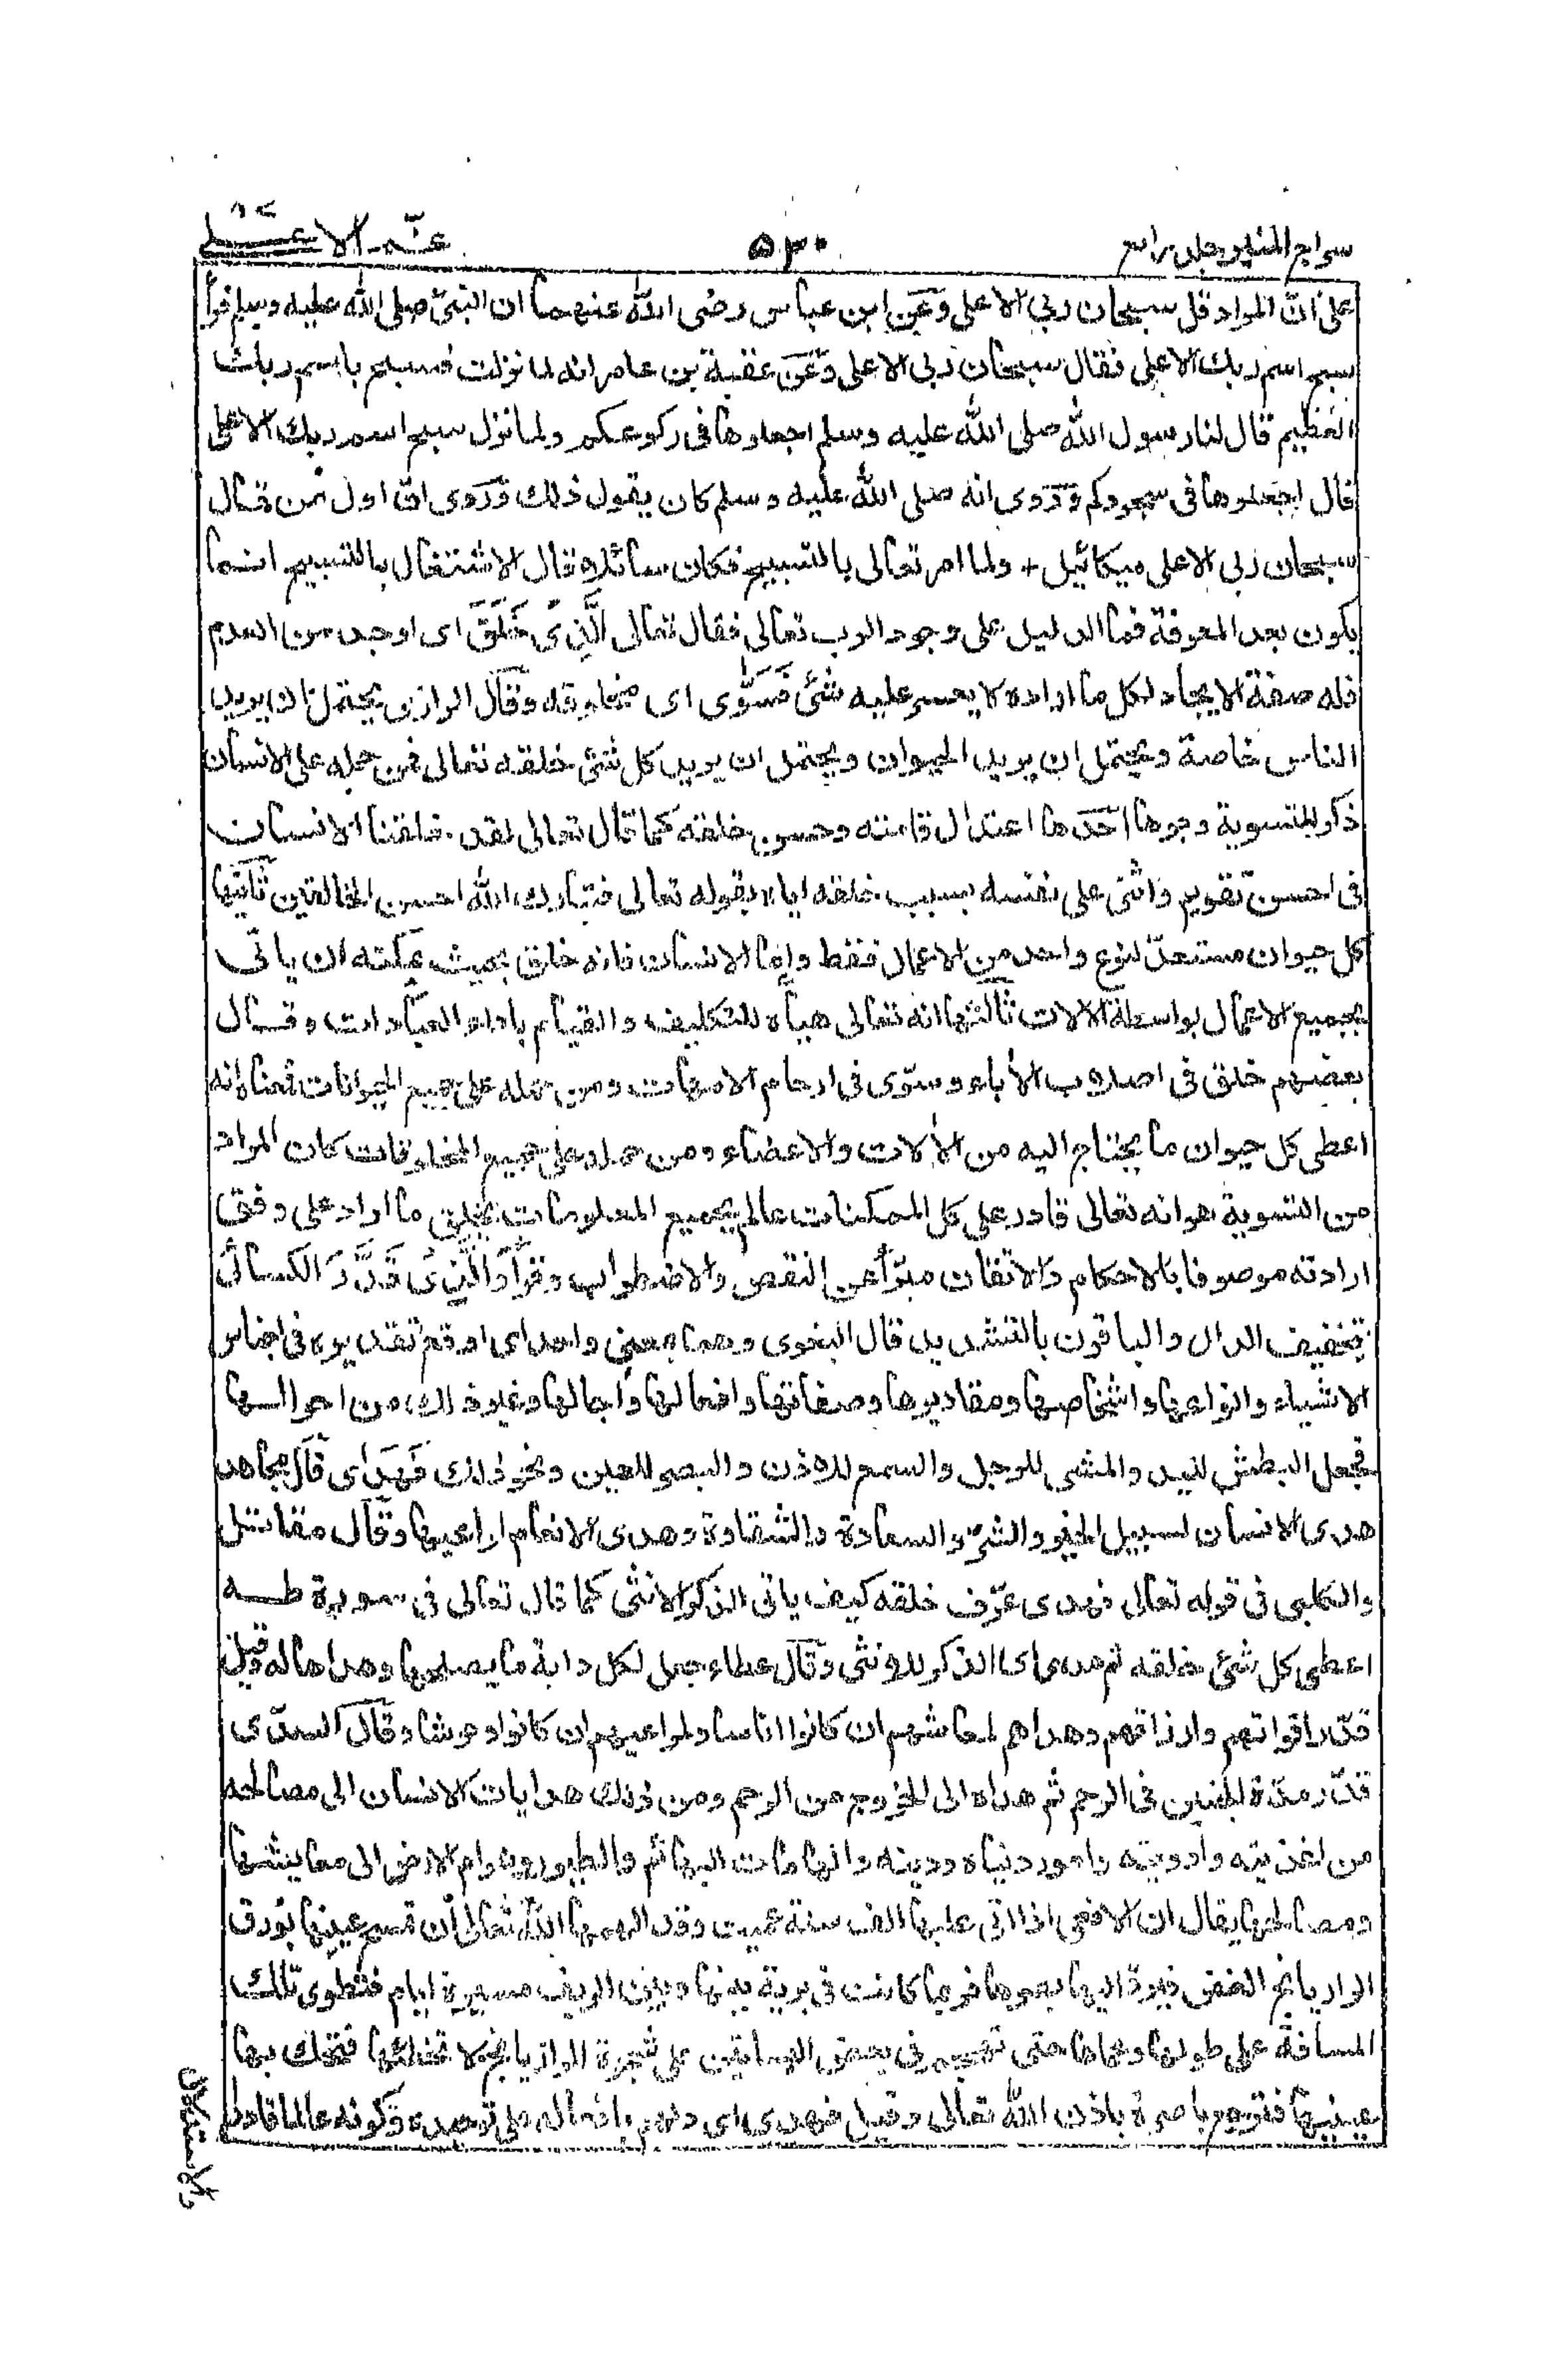 سراج المنير جلد رابع ٥٣٠ عمّ ـ الاعلى
على انّ المراد قل سبحان ربي الاعلى وعن ابن عباس رضى الله عنهما ان النبىّ صلى الله عليه وسلم قرأ
سبح اسم ربك الاعلى فقال سبحان ربى الاعلى وعن عقبة بن عامر انه لما نزلت فسبح باسم ربك
العظيم قال لنا رسول الله صلى الله عليه وسلم اجعلوها فى ركوعكم ولما نزل سبح اسم ربك الاعلى
قال اجعلوها فى سجودكم وروى انه صلى الله عليه وسلم كان يقول ذلك وروى انّ اول من قال
سبحان ربى الاعلى ميكائيل + ولما امر تعالى بالتسبيح فكان سائلا قال الاشتغال بالتسبيح انما
يكون بعد المعرفة فما الدليل على وجود الرب تعالى فقال تعالى الَّذِىْ خَلَقَ اى اوجد من العدم
فله صفة الايجاد لكل ما اراده لا يعسر عليه شئ فَسَوّٰى اى مخلوقه وقال الرازى يحتمل ان يريد
الناس خاصة ويحتمل ان يريد الحيوان ويحتمل ان يريد كل شئ خلقه تعالى فمن حمله على الانسان
ذكر للتسوية وجوها احدها اعتدال قامته وحسن خلقه كما قال تعالى لقد خلقنا الانسان
فى احسن تقويم واثنى على نفسه بسبب خلقه اياه بقوله تعالى فتبارك الله احسن الخالقين ثانيها
كل حيوان مستعدّ لنوع واحد من الاعمال فقط واما الانسان فانه خلق بحيث يمكنه ان ياتى
بجميع الاعمال بواسطة الالات ثالثها انه تعالى هيأه للتكليف والقيام باداء العبادات وقال
بعضهم خلق فى اصلاب الأباء وسوّى فى ارحام الامهات ومن حمله على جميع الحيوانات فمعناه انه
اعطى كل حيوان ما يحتاج اليه من الألات والاعضاء ومن حمله على جميع المخلوقات كان المراد
من التسوية هو انه تعالى قادر على كل الممكنات عالم بجميع المعلومات يخلق ما اراد على وفق
ارادته موصوفا بالاحكام والاتقان مبرّأ عن النقص والاضطراب وقرأ وَالَّذِىْ قَدَّرَ الكسائى
بتخفيف الدال والباقون بالتشديد قال البغوى وهما بمعنى واحد اى اوقع تقديره فى اجناس
الاشياء وانواعها واشخاصها ومقاديرها وصفاتها وافعالها وأجالها وغير ذلك من احوالها
فجعل البطش لليد والمشى للرجل والسمع للاذن والبصر للعين ونحو ذلك فَهَدٰى قال مجاهد
هدى الانسان لسبيل الخير والشرّ والسعادة والشقاوة وهدى الانعام لمراعيها وقال مقاتل
والكلبى فى قوله تعالى فهدى عرّف خلقه كيف ياتى الذكر الانثى كما قال تعالى فى سورة طه
اعطى كل شئ خلقه ثم هدى اى الذكر للانثى وقال عطاء جعل لكل دابة ما يصلحها وهداها له وقيل
قدّر اقواتهم وارزاقهم وهداهم لمعاشهم ان كانوا اناسا ولمراعيهم ان كانوا وحوشا وقال السدّى
قدّر مدّة الجنين فى الرحم ثم هداه الى الخروج من الرحم ومن ذلك هدايات الانسان الى مصالحه
من اغذيته وادويته وامور دنياه ودينه والهامات البهائم والطيور وهوام الارض الى معايشها
ومصالحها يقال ان الافعى اذا اتى عليها الف سنة عميت وقد الهمها الله تعالى أن تمسح عينها بورق
الرازيانج الغض فيردّ اليها بصرها فربما كانت فى برية بينها وبين الريف مسيرة ايام فتطوى تلك
المسافة على طولها وعماها حتى تهجم فى بعض البساتين على شجرة الرازيانج لا تخطئها فتحك بها
عينيها فترجع باصرة باذن الله تعالى وقيل فهدى اى دلهم بافعاله على توحيده وكونه عالما قادرا